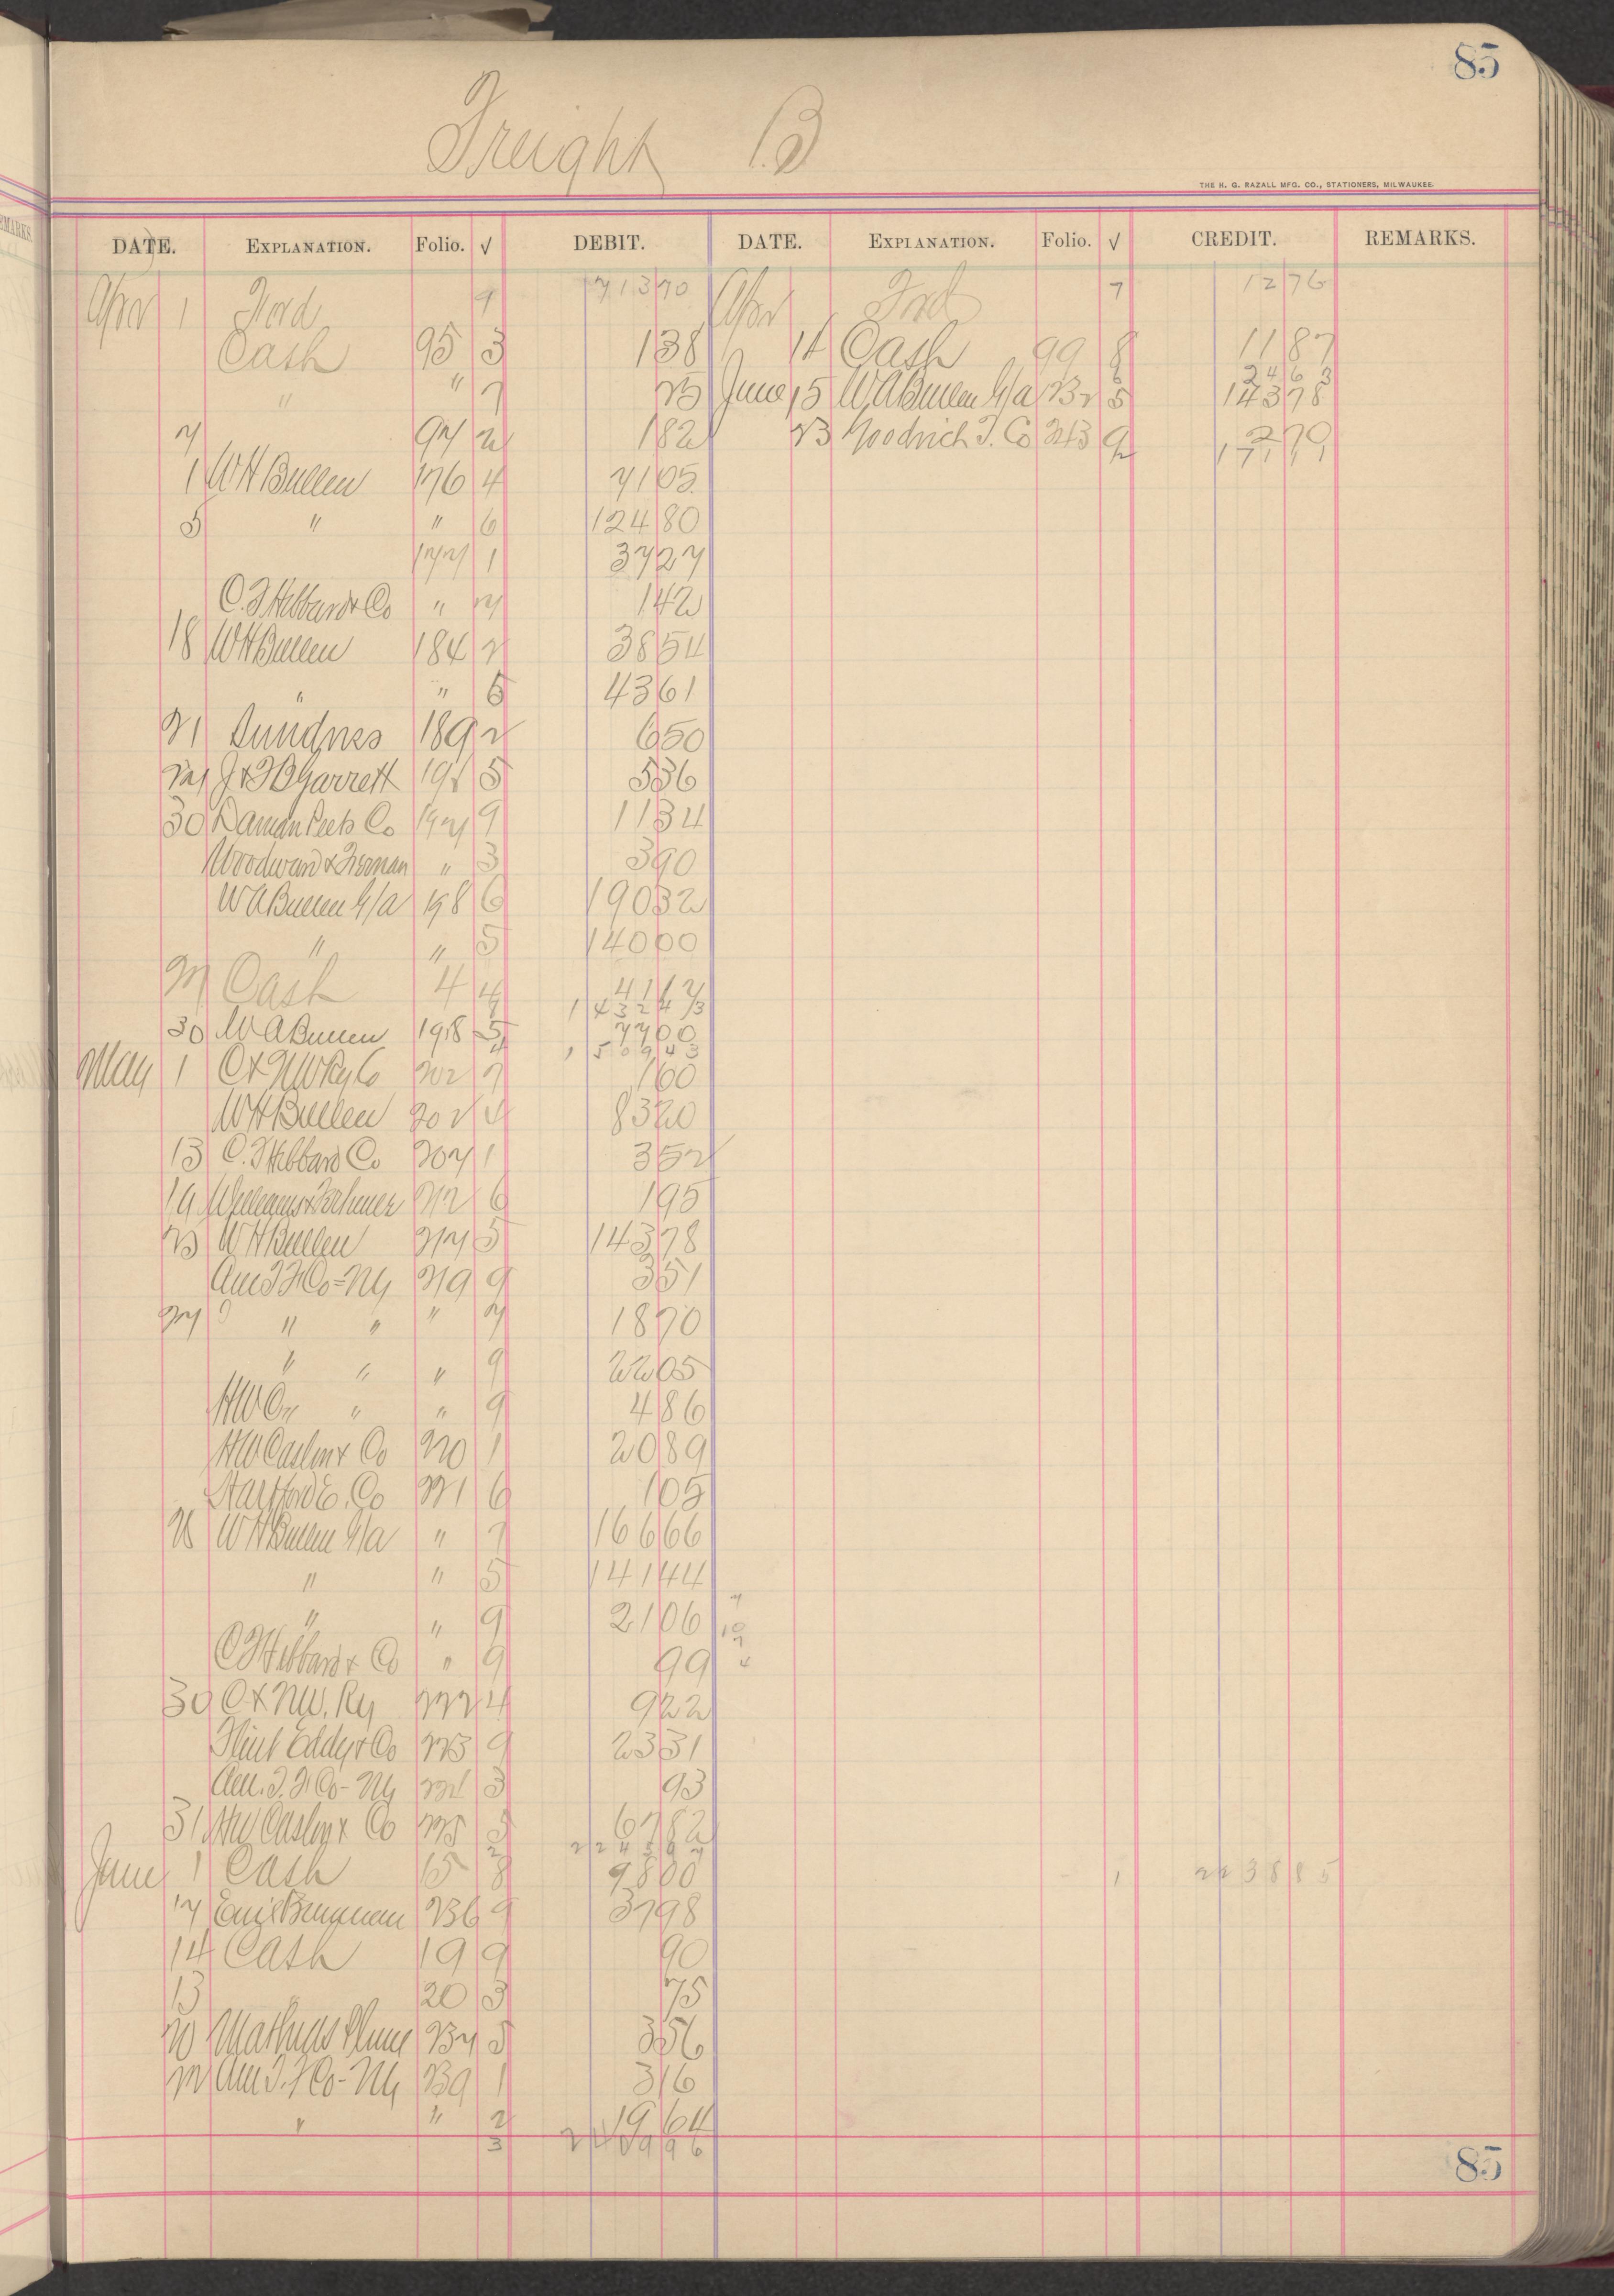 85
Freight B
THE H. G. RAZALL MFG. CO., STATIONERS, MILWAUKEE.
DATE. EXPLANATION. Folio. √ DEBIT. DATE. EXPLANATION. Folio. √ CREDIT. REMARKS.
Apr 1 Ford 9 713 70 Apr Ford 7 12 76
Cash 95 3 1 38 14 Cash 99 8 11 87
" " 7 25 June 15 WABullen G/a 232 5 143 78
7 97 2 1 82 23 Goodrich T. Co 243 9 2 70
1 WHBullen 176 4 71 05
5 " " 6 124 80
177 1 37 27
C.F. Hebbard & Co " 7 1 42
18 WHBullen 184 2 38 54
" " 5 43 61
21 Sundries 189 2 6 50
J & F B Garrett 5 5 36
30 Co 197 9 11 34
Woodward & " 3 3 90
WABullen G/a 198 6 190 32
" " 5 140 00
Cash 4 4
1 432 4 3
30 WABullen 198 5 77 00
1 509 43
May 1 C&NWRy Co 202 7 1 60
WHBullen 202 4 83 20
13 C. F Hebbard Co 207 1 3 52
19 212 6 1 95
23 WHBullen 217 5 143 78
Am T F Co - NY 219 9 3 51
27 " " " 7 18 70
" " " 9 22 05
" " 9 4 86
HW Caslon & Co 220 1 20 89
Hartford E. Co 221 6 1 05
28 WHBullen G/a " 7 166 66
" " 5 141 44
" " 9 21 06
CFHebbard & Co " 9 99
30 C & NW. Ry 222 4 9 22
Flint Eddy & Co 223 9 23 31
Am. T. F. Co - NY 3 93
31 HW Caslon & Co 225 5 67 82
June 1 Cash 15 8 98 00 1 22 38 85
17 236 9 37 98
14 Cash 19 9 90
13 " 20 3 75
20 237 5 3 56
22 Am T. F Co - NY 239 1 3 16
" " 2 19 64
3
85